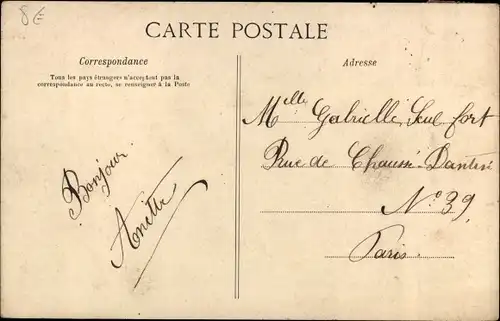 8€
CARTE POSTALE
Correspondance
Tous les pays étrangers n'acceptent pas la
correspondance au recto, se renseigner à la Poste
Bonjour
Anitta
Adresse
Melle Gabrielle Seul fort
Rue de Chaussi-Dantin
No 39
Paris.